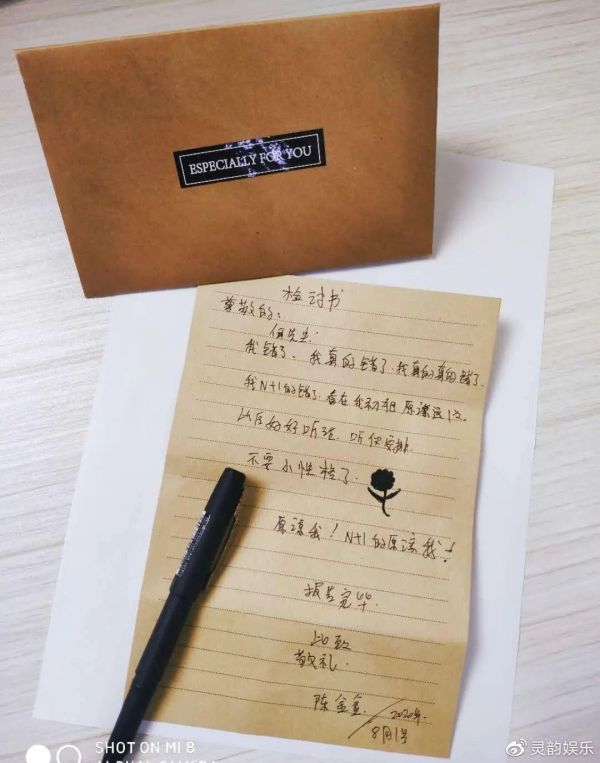 ESPECIALLY FOR YOU
检讨书
尊敬的:
何先生:
我错了、我真的错了.我真的真的错了.
我N+1的错了.看在我初犯 原谅这1次
以后好好听话,听你安排.
不耍小性格了.
原谅我!N+1的原谅我!
报告完毕
此致
敬礼.
陈金
2020年.
8月1号
SHOT ON MI 8
灵韵娱乐